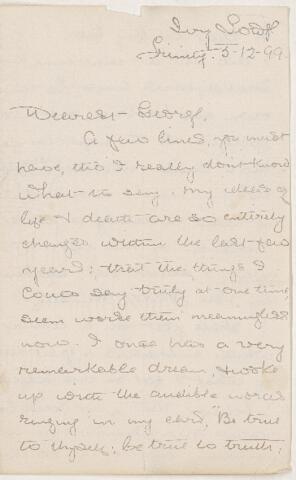 Ivy Lodge
Trinity. 5-12-99
Dearest Georg,
A few lines, you must
have, tho' I really don't know
what to say. My ideas of
life & death are so entirely
changed within the last few
years; that the things I
could say truly at one time,
seem worse than meaningless
now. I once had a very
remarkable dream, & woke
up with the audible words
ringing in my ears, "Be true
to thyself; be true to truth;